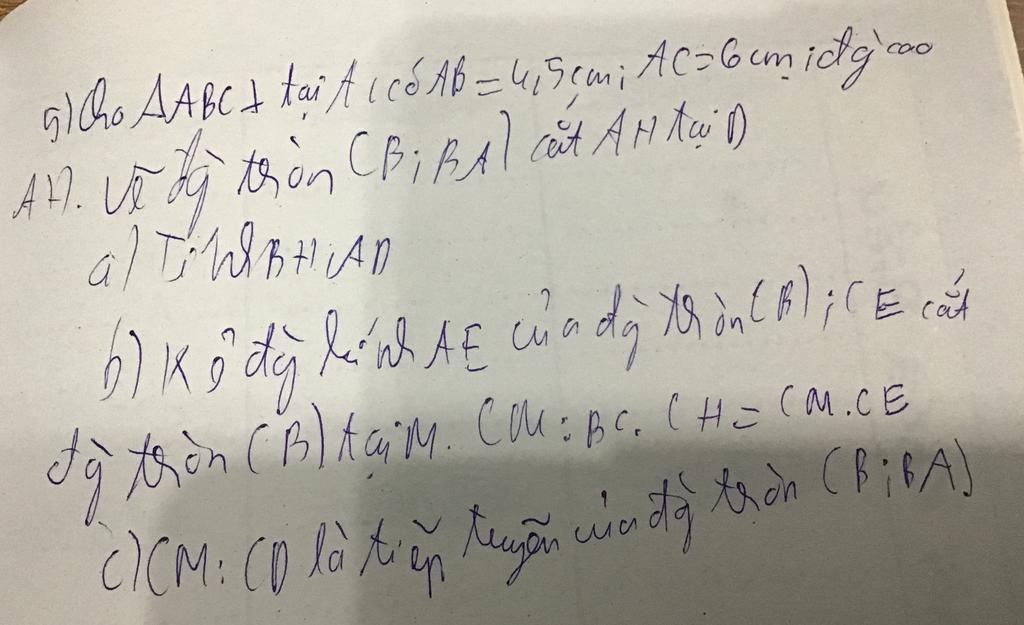 5) Cho ΔABC ⊥ tại A, có AB = 4,5 cm; AC = 6 cm; đg` cao
AH. Vẽ đg` tròn (B; BA) cắt AH tại D
a) Tính BH; AD
b) Kẻ đg` kính AE của đg` tròn (B); CE cắt
đg` tròn (B) tại M. CM: BC. CH = CM. CE
c) CM: CD là tiếp tuyến của đg` tròn (B; BA)